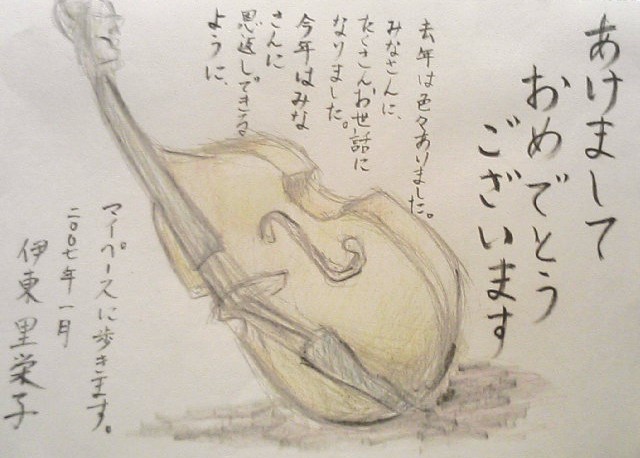 あけまして
おめでとう
ございます
去年は色々ありました。
みなさんに、
たくさんお世話に
なりました。
今年はみな
さんに
恩返しできる
ように、
マイペースに歩きます。
二〇〇七年一月
伊東里栄子